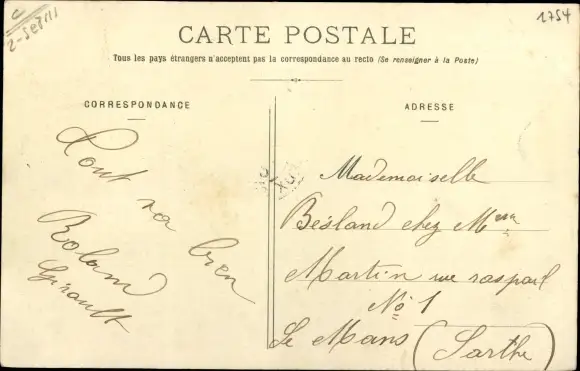 C
2-Sept 11
1754
CARTE POSTALE
Tous les pays étrangers n'acceptent pas la correspondance au recto (Se renseigner à la Poste)
CORRESPONDANCE
Tout va bien
Roland
Girault
ADRESSE
Mademoiselle
Besland chez Mme
Martin rue raspail
No 1
Le Mans (Sarthe)